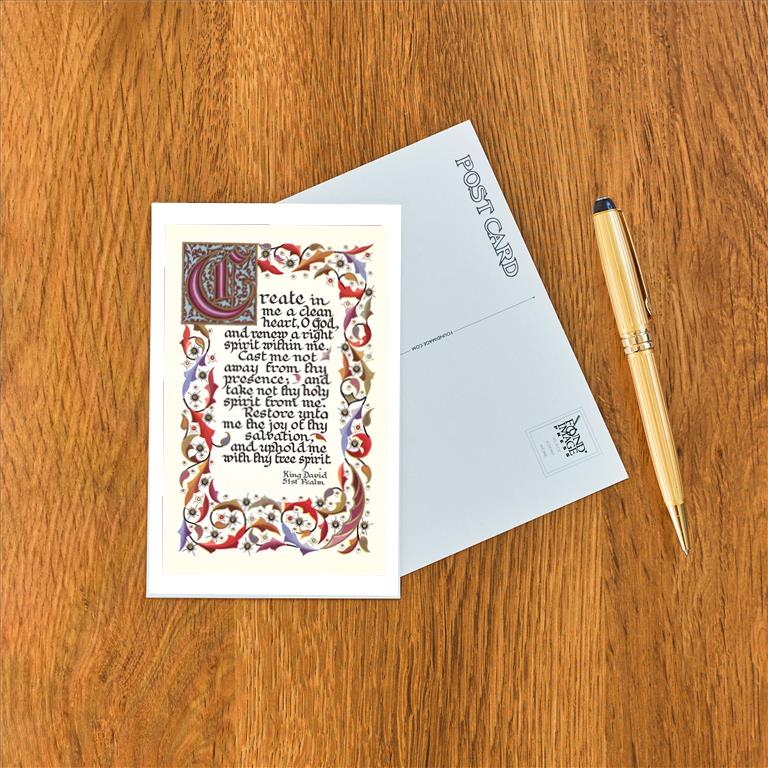 Create in
me a clean
heart, O God,
and renew a right
spirit within me.
Cast me not
away from thy
presence; and
take not thy holy
spirit from me.
Restore unto
me the joy of thy
salvation,
and uphold me
with thy free spirit.
King David
51st Psalm
POST CARD
FOUNDIMAGE.COM
FOUND
IMAGE
PRESS